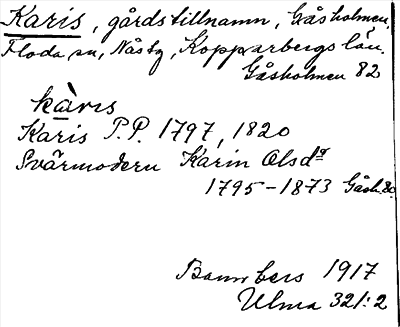 Karis, gårdstillnamn, Gåsholmen,
Floda sn, Näsby, Kopparbergs län.
Gåsholmen 82
kàrıs
Karis P.P. 1797, 1820
Svärmodern Karin Olsdr
1795-1873 Gåsh. 80.
1917
Ulma 321:2